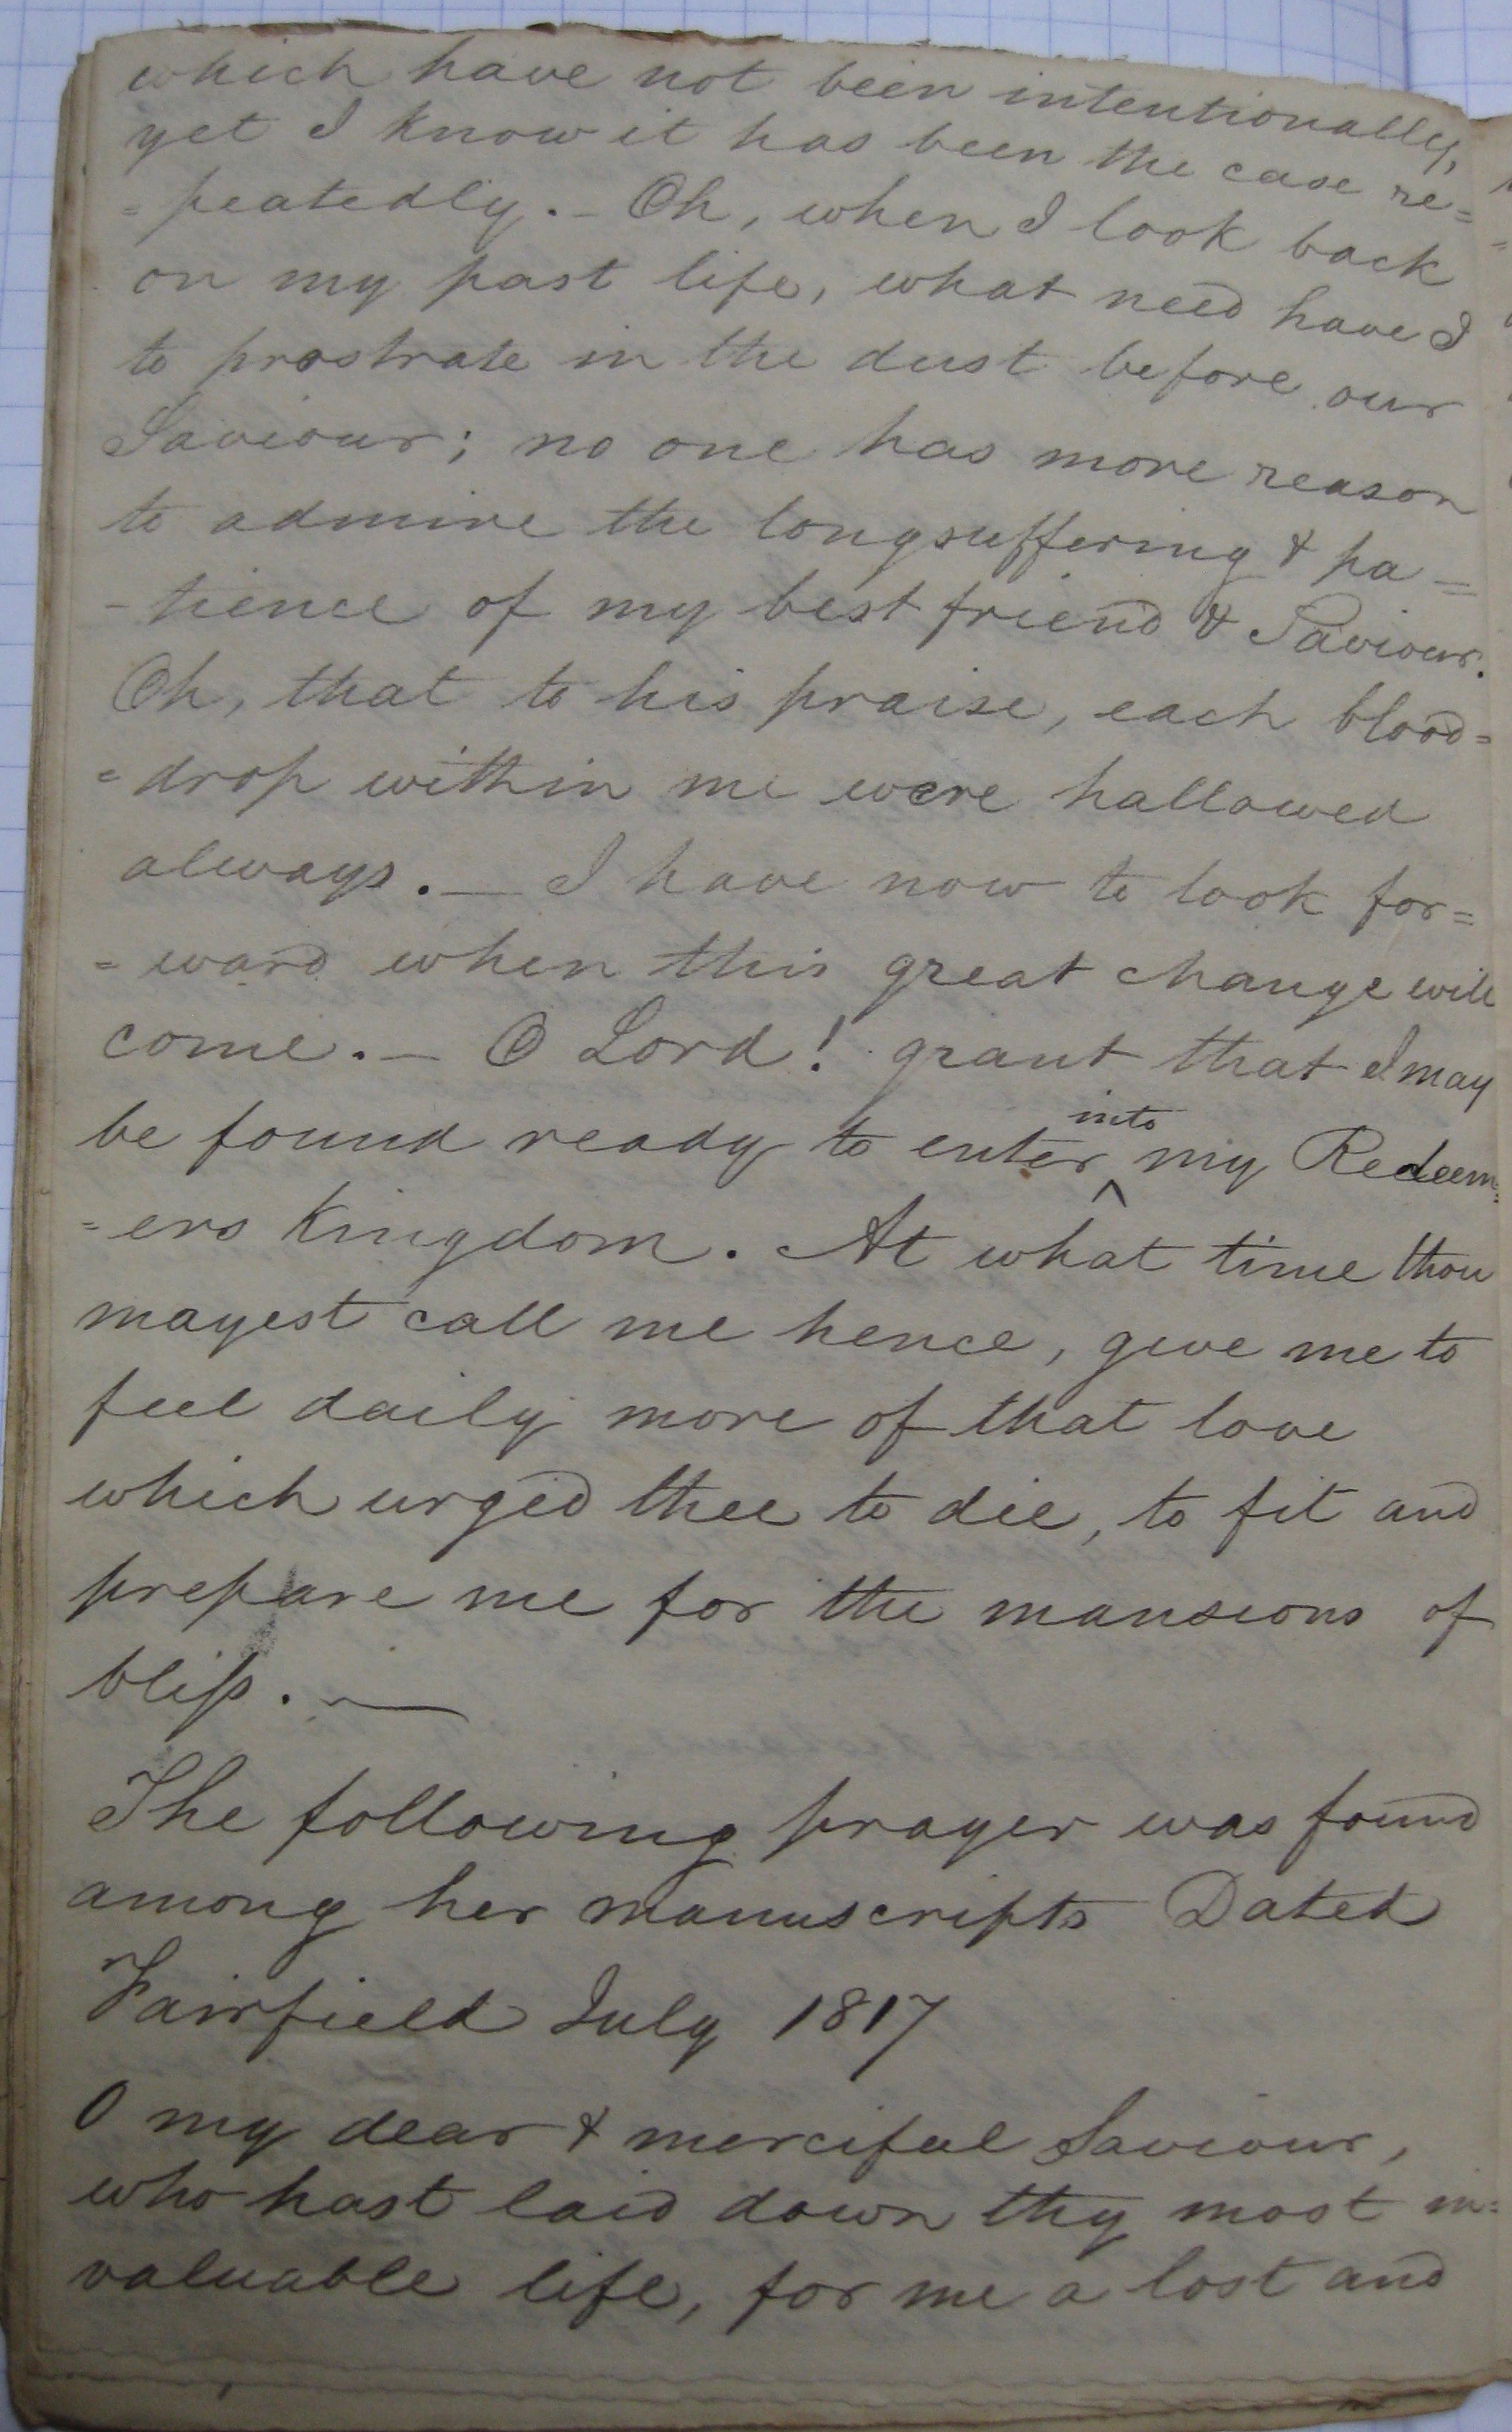 which have not been intentionally,
yet I know it has been the case re=
=peatedly. - Oh, when I look back
on my past life, what need have I
to prostrate in the dust before our
Saviour; no one has more reason
to admire the longsuffering & pa=
-tience of my best friend & Saviour.
Oh, that to his praise, each blood=
=drop within me were hallowed
always. — I have now to look for=
=ward when this great change will
come. — O Lord! grant that I may
be found ready to enter into my Redeem=
=ers Kingdom. At what time thou
mayest call me hence, give me to
feel daily more of that love
which urged thee to die, to fit and
prepare me for the mansions of
bliſs. —
The following prayer was found
among her manuscripts Dated
Fairfield July 1817
O my dear & merciful Saviour,
who hast laid down thy most in=
valuable life, for me a lost and